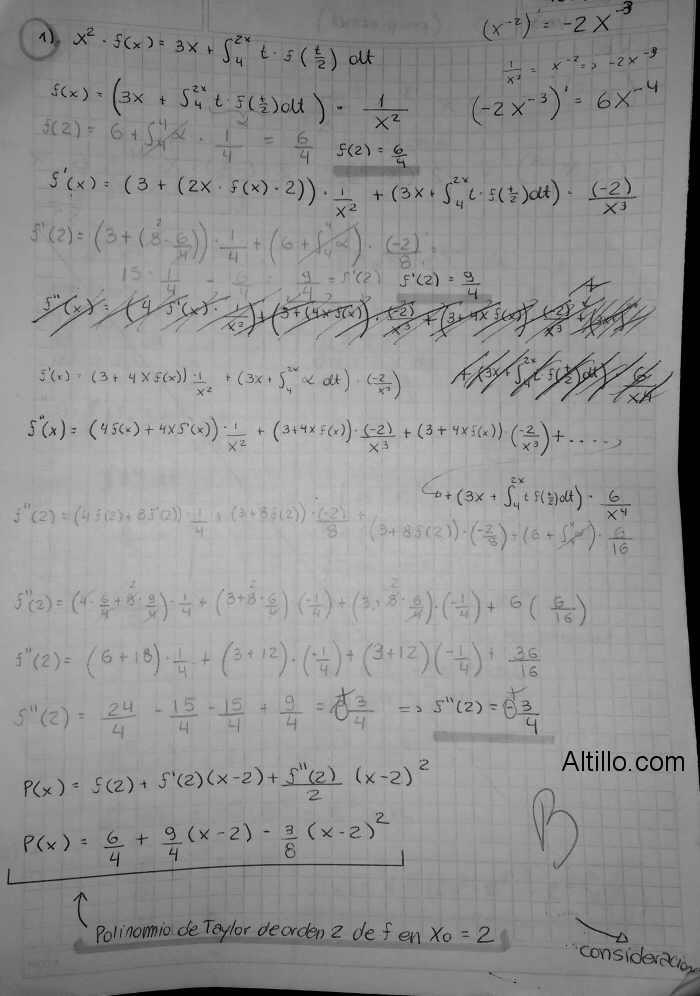 (x⁻²)' = -2x⁻³
1). x² · f(x) = 3x + ∫₄²ˣ t · f(t/2) dt
1/x² = x⁻² => -2x⁻³
f(x) = (3x + ∫₄²ˣ t · f(t/2) dt) · 1/x²
(-2x⁻³)' = 6x⁻⁴
f(2) = 6 + ∫₄⁴ α · 1/4 = 6/4
f(2) = 6/4
f'(x) = (3 + (2x · f(x) · 2)) · 1/x² + (3x + ∫₄²ˣ t · f(t/2) dt) · (-2)/x³
f'(2) = (3 + (8 · 6/4)) · 1/4 + (6 + ∫₄⁴ α) · (-2)/8 =
15 · 1/4 - 6/4 = 9/4 = f'(2)
f'(2) = 9/4
f'(x) = (3 + 4x f(x)) · 1/x² + (3x + ∫₄²ˣ α dt) · (-2/x³)
f''(x) = (4f(x) + 4x f'(x)) · 1/x² + (3+4x f(x)) · (-2)/x³ + (3+4x f(x)) · (-2/x³) + ....,
+ (3x + ∫₄²ˣ t f(t/2) dt) · 6/x⁴
f''(2) = (4f(2) + 8f'(2)) · 1/4 + (3+8f(2)) · (-2)/8 +
(3+8f(2)) · (-2/8) + (6 + ∫₄⁴ α) · 6/16
f''(2) = (4 · 6/4 + 8 · 9/4) · 1/4 + (3+8 · 6/4) (-1/4) + (3 + 8 · 6/4) · (-1/4) + 6 (6/16)
f''(2) = (6+18) · 1/4 + (3+12) · (-1/4) + (3+12) (-1/4) + 36/16
f''(2) = 24/4 - 15/4 - 15/4 + 9/4 = - 3/4 => f''(2) = - 3/4
Altillo.com
P(x) = f(2) + f'(2) (x-2) + f''(2)/2 (x-2)²
B
P(x) = 6/4 + 9/4 (x-2) - 3/8 (x-2)²
Polinomio de Taylor de orden 2 de f en x₀ = 2